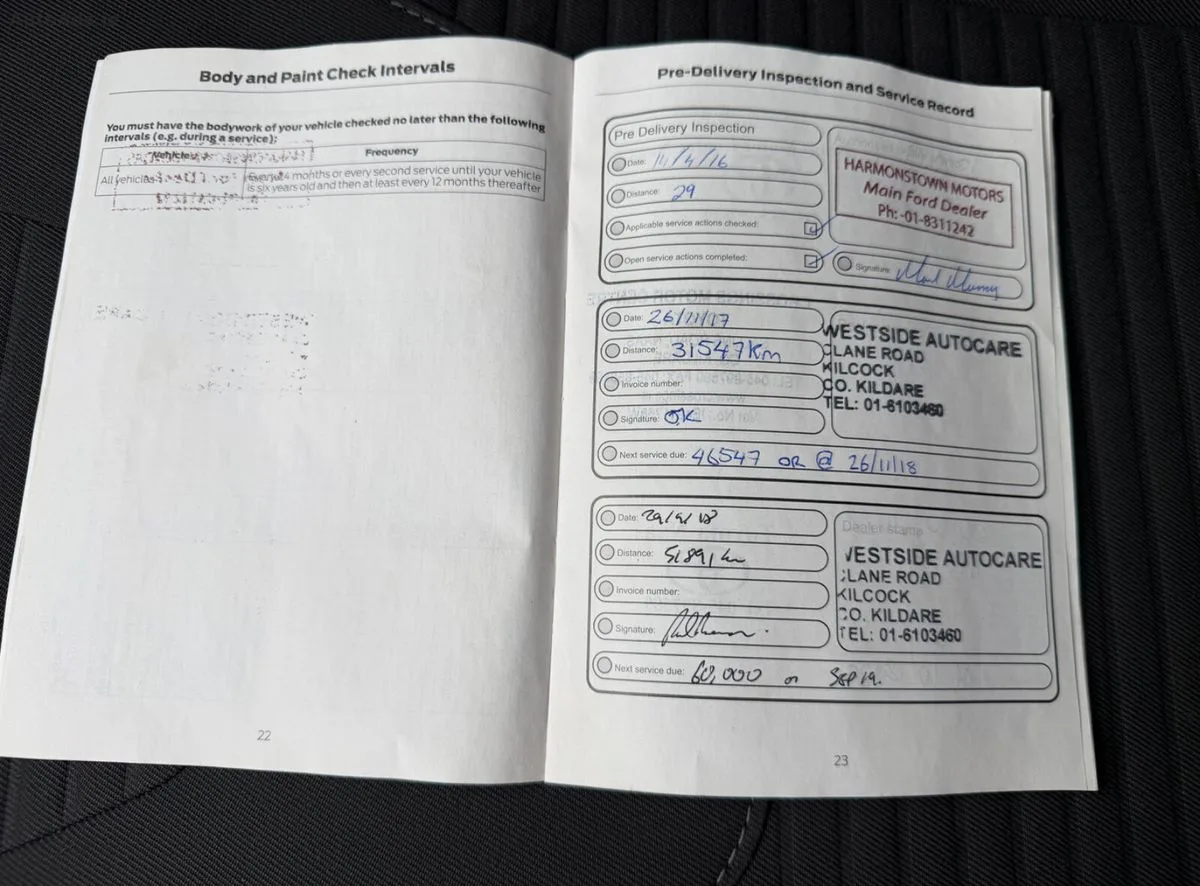 Body and Paint Check Intervals
You must have the bodywork of your vehicle checked no later than the following
intervals (e.g. during a service):
Vehicles Frequency
All vehicles Every 24 months or every second service until your vehicle
is six years old and then at least every 12 months thereafter
22
Pre-Delivery Inspection and Service Record
Pre Delivery Inspection
Date: 14/4/16
Distance: 29
Applicable service actions checked:
Open service actions completed:
HARMONSTOWN MOTORS
Main Ford Dealer
Ph:-01-8311242
Signature:
Date: 26/11/17
Distance: 31547Km
Invoice number:
Signature: OK
Next service due: 46547 OR @ 26/11/18
WESTSIDE AUTOCARE
CLANE ROAD
KILCOCK
CO. KILDARE
TEL: 01-6103460
Date: 29/9/18
Distance: 51891 km
Invoice number:
Signature:
Next service due: 60,000 or Sep 19.
Dealer stamp
WESTSIDE AUTOCARE
CLANE ROAD
KILCOCK
CO. KILDARE
TEL: 01-6103460
23